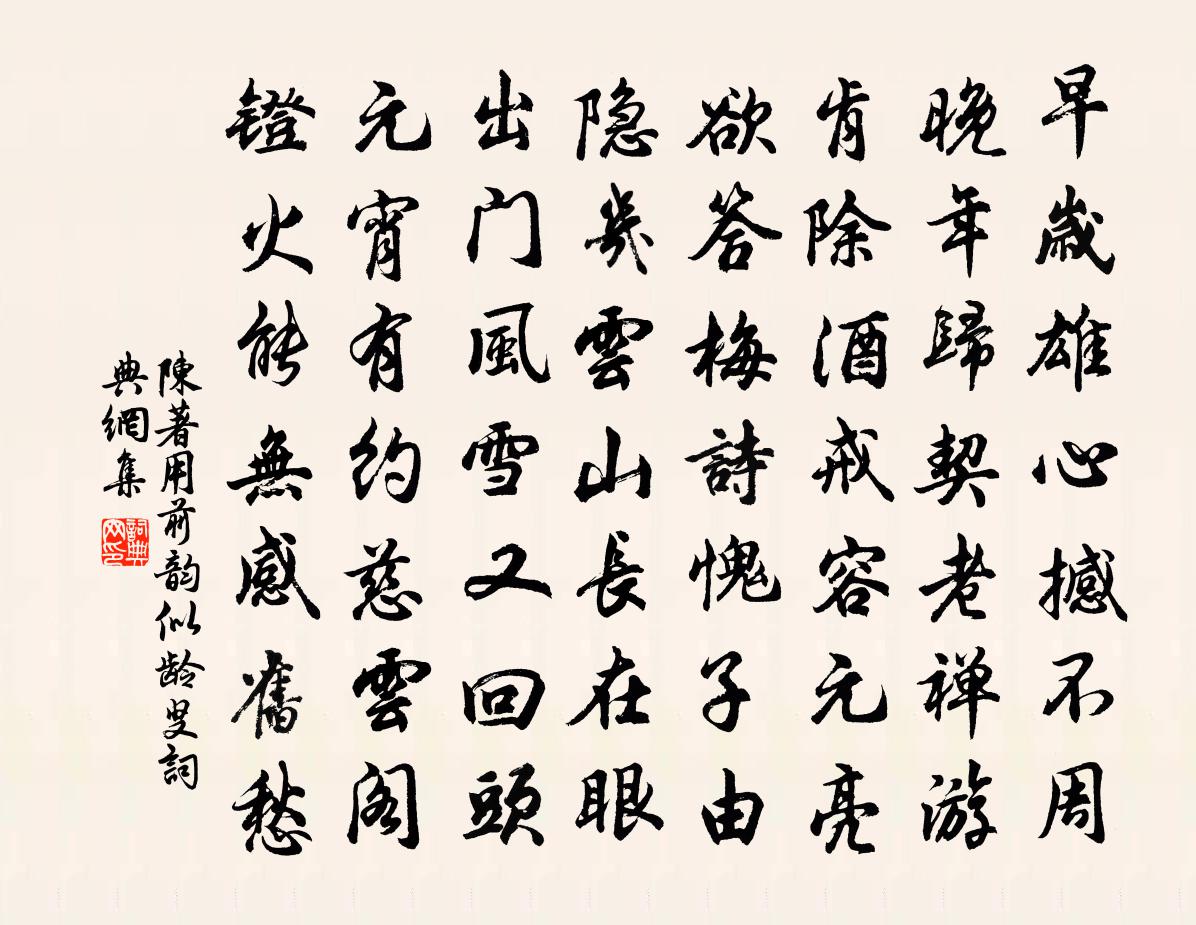 早歲雄心撼不周
晚年歸契老禅游
肯除酒戒容元亮
欲答梅詩愧子由
隐几雲山長在眼
出门風雪又回頭
元宵有約慈雲阁
鐙火能無感舊愁
陳著用前韵似龄叟詞
典網集
詞典网印